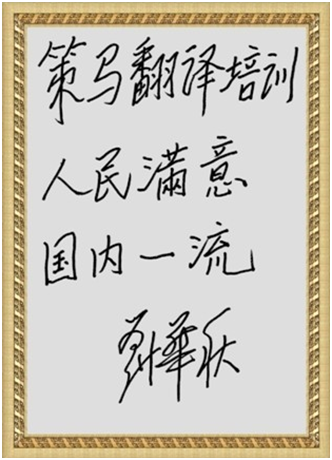 策马翻译培训
人民满意
国内一流
刘华秋